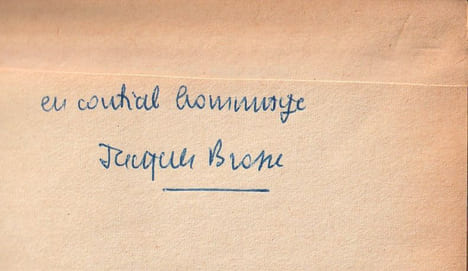 en cordial hommage
Jacques Brosse